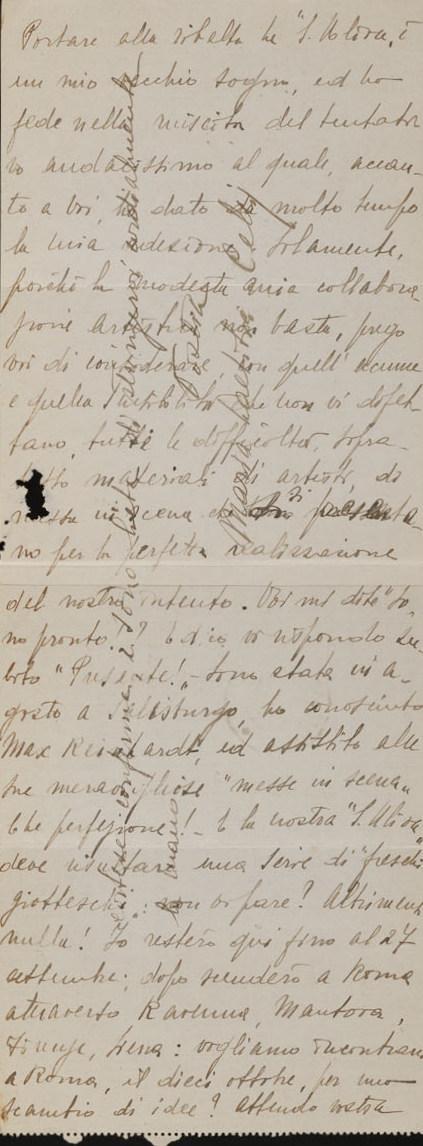 Portare alla ribalta la "S. Uliva, è
un mio vecchio sogno, ed ho
fede nella riuscita del tentati
vo audacissimo al quale, accan-
to a voi, ho dato da molto tempo
la mia adesione. Solamente,
poichè la modesta mia collabora-
zione artistica non basta, prego
voi di considerare, con quell'acume
e quella sensibilità che non vi difet-
tano, tutte le difficoltà, sopra-
tutto materiali di artisti, di
messa in scena che si presenta-
no per la perfetta realizzazione
del nostro intento. Voi mi dite "So-
no pronto!"? Ed io vi rispondo su-
bito "Presente!" - Sono stata in a-
gosto a Salisburgo, ho conosciuto
Max Reinhardt, ed assistito alle
sue meravigliose "messe in scena"
Che perfezione! - E la nostra "S. Uliva"
deve risultare una serie di "freschi
giotteschi": non vi pare? Altrimenti
nulla! Io resterò qui fino al 27
settembre; dopo scenderò a Roma
attraverso Ravenna, Mantova,
Firenze, Siena: vogliamo incontrarci
a Roma, il dieci ottobre, per uno
scambio di idee? Attendo vostra
conferma e sono lieta di stringervi cordialmente
la mano
Maria Celi